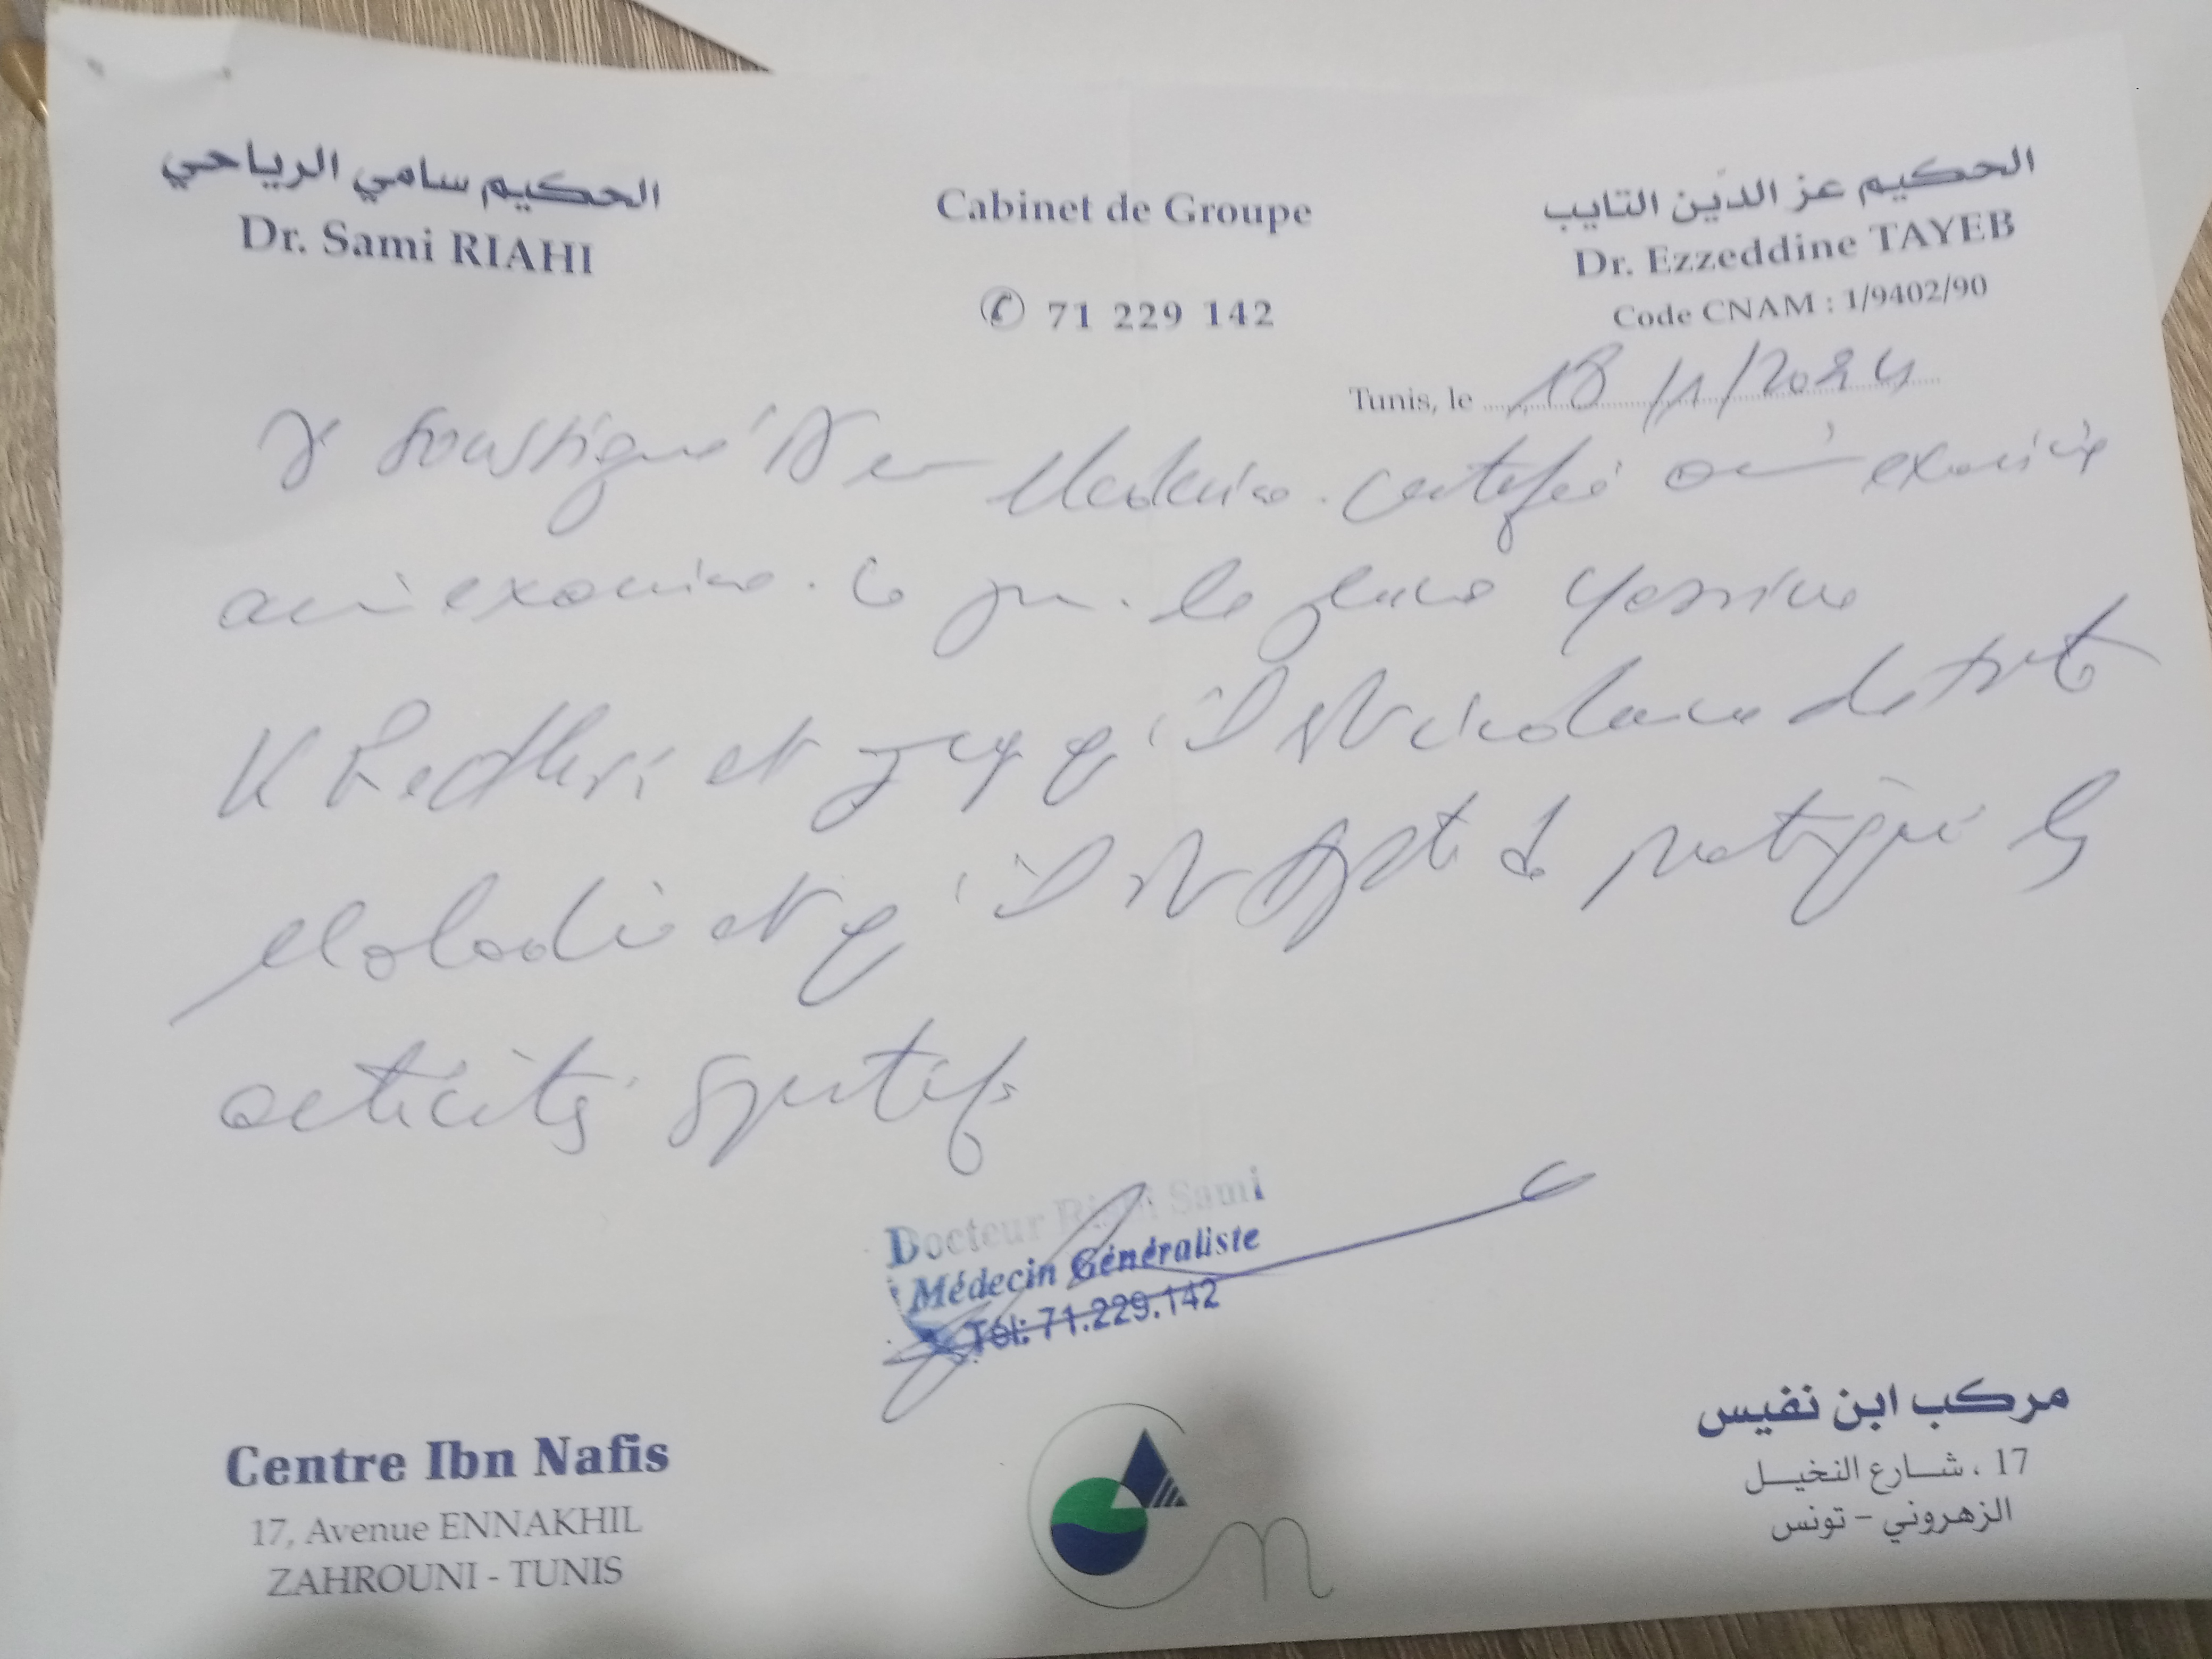 الحكيم سامي الرياحي
Dr. Sami RIAHI
Cabinet de Groupe
✆ 71 229 142
الحكيم عز الدّين التايب
Dr. Ezzeddine TAYEB
Code CNAM : 1/9402/90
Tunis, le 18/1/2024
Je soussigné Dr en Médecine certifie avoir examiné
avoir examiné ce jour le jeune Yassine
Khedhri et qu'il est indemne de toute
Maladie et qu'il est Apte à pratiquer les
activités sportifs
Docteur Riahi Sami
Médecin Généraliste
Tél: 71.229.142
Centre Ibn Nafis
17, Avenue ENNAKHIL
ZAHROUNI - TUNIS
مركب ابن نفيس
17 ، شارع النخيل
الزهروني - تونس